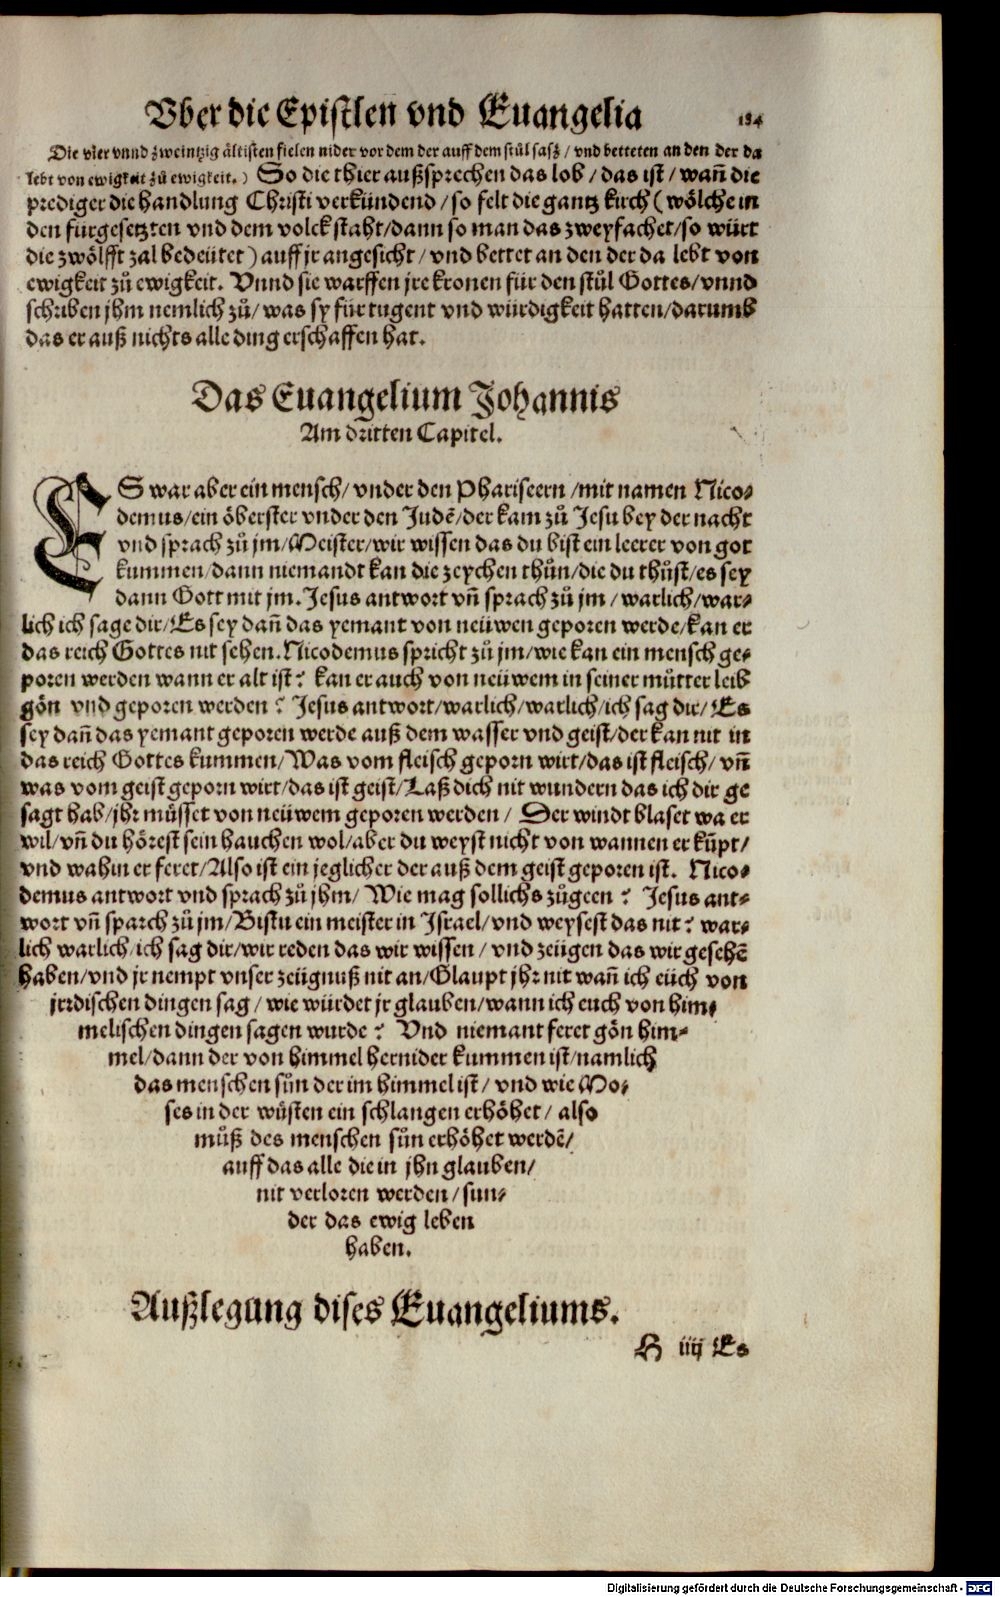 Vber die Epistlen vnd Euangelia 184
Die vier vnnd zweintzig ältisten fielen nider vor dem der auff dem stůl sasz / vnd betteten an den der da
lebt von ewigkeit zů ewigkeit.) So die thier außsprechen das lob / das ist / wañ die
prediger die handlung Christi verkündend / so felt die gantz kirch ( wölche in
den fürgesetzten vnd dem volck staht/dann so man das zweyfachet/so würt
die zwölfft zal bedeütet ) auff jr angesicht / vnd bettet an den der da lebt von
ewigkeit zů ewigkeit. Vnnd sie warffen jre kronen für den stůl Gottes/vnnd
schriben jhm nemlich zů/ was sy für tugent vnd würdigkeit hatten/darumb
das er auß nichts alle ding erschaffen hat.
Das Euangelium Johannis
Am dritten Capitel.
ES war aber ein mensch/ vnder den Phariseern /mit namen Nico-
demus/ein öberster vnder den Judē/der kam zů Jesu bey der nacht
vnd sprach zů jm/Meister/wir wissen das du bist ein leerer von got
kummen/dann niemandt kan die zeychen thůn/die du thůst/es sey
dann Gott mit jm. Jesus antwort vñ sprach zů jm / warlich/war-
lich ich sage dir/Es sey dañ das yemant von neüwen geporen werde/kan er
das reich Gottes nit sehen. Nicodemus spricht zů jm/wie kan ein mensch ge-
poren werden wann er alt ist? kan er auch von neüwem in seiner můtter leib
gön vnd geporen werden? Jesus antwort/warlich/warlich/ich sag dir/ Es
sey dañ das yemant geporen werde auß dem wasser vnd geist/der kan nit in
das reich Gottes kummen/Was vom fleisch geporn wirt/das ist fleisch/ vñ
was vom geist geporn wirt/das ist geist/Laß dich nit wundern das ich dir ge
sagt hab/jhr müsset von neüwem geporen werden / Der windt blaset wa er
wil/vñ du hörest sein hauchen wol/aber du weyst nicht von wannen er kūpt/
vnd wahin er feret/Also ist ein jeglicher der auß dem geist geporen ist. Nico-
demus antwort vnd sprach zů jhm/ Wie mag sollichs zůgeen? Jesus ant-
wort vñ sparch zů jm/Bistu ein meister in Israel/vnd weysest das nit? war-
lich warlich/ich sag dir/wir reden das wir wissen / vnd zeügen das wir gesehē
haben/vnd jr nempt vnser zeügnuß nit an/Glaupt jhr nit wañ ich eüch von
jrrdischen dingen sag / wie würdet jr glauben/wann ich euch von him-
melischen dingen sagen wurde? Vnd niemant feret gön him-
mel/dann der von himmel hernider kummen ist/namlich
das menschen sůn der im himmel ist/ vnd wie Mo-
ses in der wůsten ein schlangen erhöhet/ also
můß des menschen sůn erhöhet werdē/
auff das alle die in jhn glauben/
nit verloren werden/sun-
der das ewig leben
haben.
Außlegung dises Euangeliums.
H iiij Es
Digitalisierung gefördert durch die Deutsche Forschungsgemeinschaft - DFG